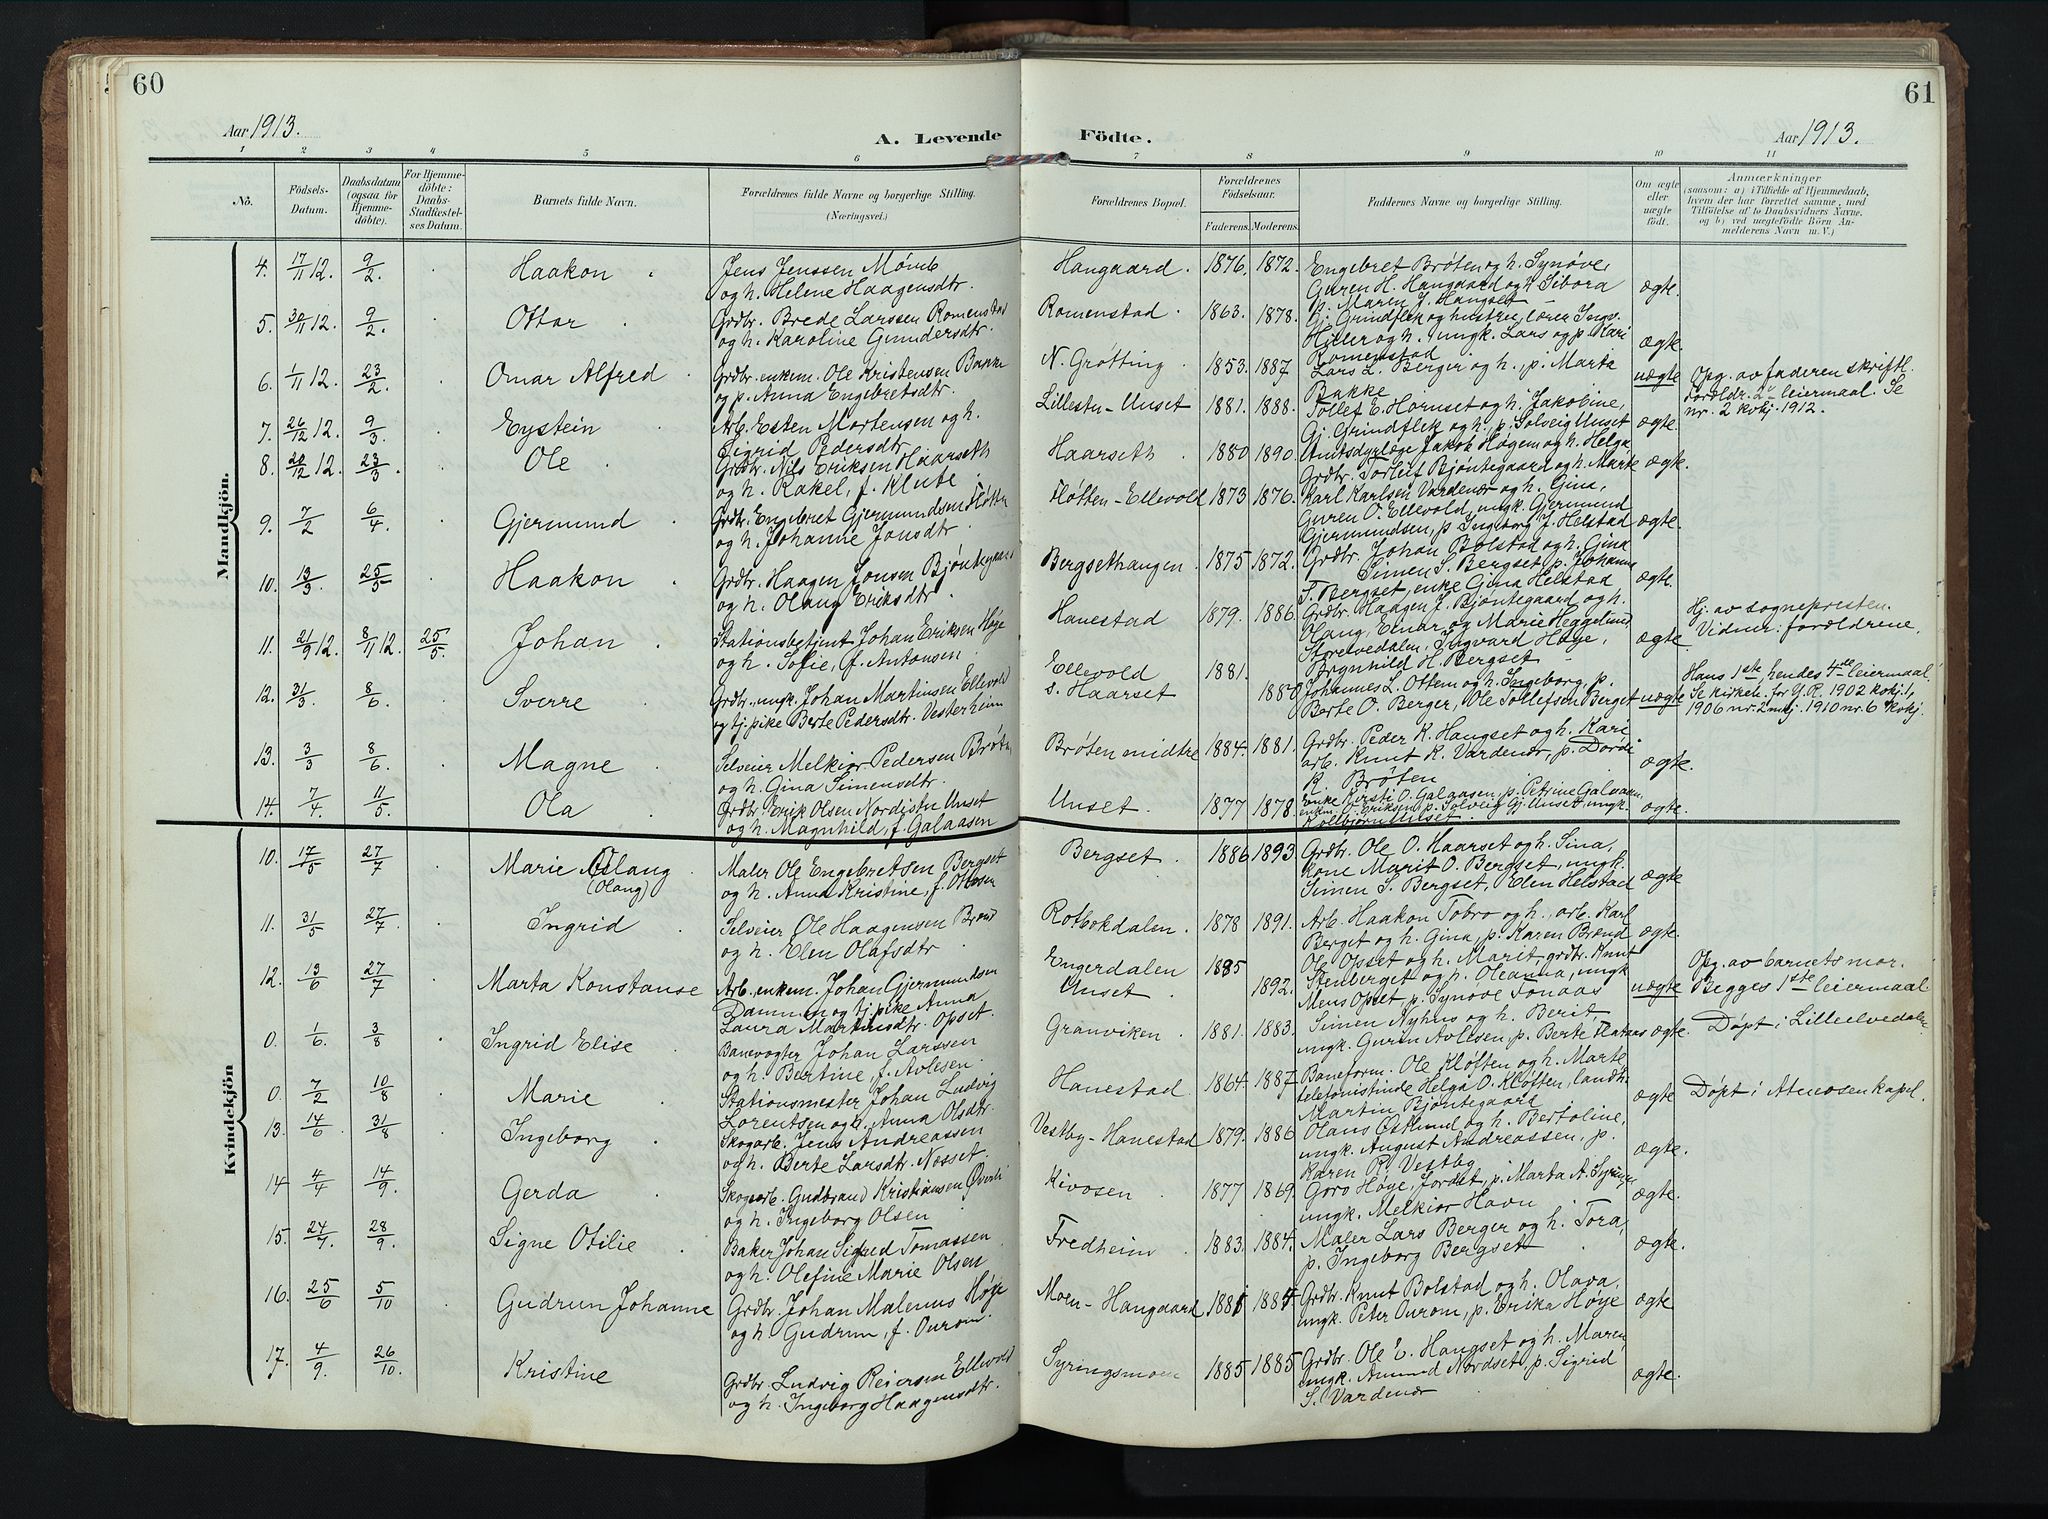 60
61
Aar 1913.
A. Levende Födte.
Aar 1913.
1 2 3 4 5 6 7 8 9 10 11
No.
Födsels-Datum.
Daabsdatum (ogsaa for Hjemmedöbte).
For Hjemmedöbte: Daabs-Stadfæstelses Datum.
Barnets fulde Navn.
Forældrenes fulde Navne og borgerlige Stilling.
(Næringsvei.)
Forældrenes Bopæl.
Forældrenes Födselsaar.
Faderens. Moderens.
Faddernes Navne og borgerlige Stilling.
Om ægte eller uægte födt.
Anmærkninger
(saasom: a) i Tilfælde af Hjemmedaab, hvem der har forrettet samme, med Tilföielse af to Daabsvidners Navne, og b) ved uægtefödte Börn Anmelderens Navn m. V.)
Mandkjön.
4. 17/11 12. 9/2. Haakon
Jens Jenssen Mömb
og h. Helene Haagensdtr.
Hangaard. 1876. 1872.
Engebret Bröten og h. Synöve,
Guren H. Hangaard og h. Sibora
p. Maren J. Hangset
ægte.
5. 30/11 12. 9/2. Ottar
Grdbr. Brede Larssen Romenstad
og h. Karoline Gundersdtr.
Romenstad. 1863. 1878.
Gj. Grindflek og hustru, lærer Ings.
Hitler og h., ungk. Lars og p. Kari
Romenstad
ægte.
6. 1/11 12. 23/2. Omar Alfred
Grdbr. enkem. Ole Kristensen Bakke
og p. Anna Engebretsdtr.
N. Grötting. 1853. 1887
Lars L. Berger og h., p. Marta
Bakke
uægte
Opg. av faderen skriftl.
Foreldr. 2 leiermaal. Se
nr. 2 kvkj. 1912.
7. 26/12 12. 9/3. Eystein
Arb. Esten Mortensen og h.
Sigrid Pedersdtr.
Lillestu-Unset 1881. 1888.
Tollef E. Hornset og h. Jakobine,
Gj. Grindflek og h., p. Solveig Unset
ægte.
8. 20/12 12. 23/3. Ole
Grdbr. Nils Eriksen Haarseth
og h. Rakel, f. Klute
Haarseth. 1880 1890.
Amtsdyrlæge Jakob Högem og h. Helga
Grdbr. Torleif Bjöntegaard og h. Marte
ægte.
9. 7/2 6/4. Gjermund
Grdbr. Engebret Gjermundsen Flötten
og h. Johanne Jonsdtr.
Flötten-Ellevold 1873 1876.
Karl Karlsen Vardenær og h. Gina,
Guren O. Ellevold, ungk. Gjermund
Gjermundsen, p. Ingeborg J. Helstad
ægte.
10. 13/3. 25/5. Haakon
Grdbr. Haagen Jonsen Bjöntegaard
og h. Olaug Eriksdtr.
Bergsethaugen. 1875 1872.
Grdbr. Johan Bolstad og h. Gina
Simen S. Bergset, p. Johanne
T. Bergset, enke Gina Helstad
ægte.
11. 21/9 12. 8/11 12. 25/5. Johan
Stationsbetjent Johan Eriksen Höye
og h. Sofie, f. Antonsen.
Hanestad 1879. 1886
Grdbr. Haagen J. Bjöntegaard og h.
Olaug, Einar og Marie Heggelund
Storelvedalen, Ingvard Höye,
Brynhild H. Bergset.
ægte.
Hj. av sognepresten.
Vidner: foreldrene.
12. 31/3. 8/6. Sverre
Grdbr., ungk. Johan Martinsen Ellevold
og tj.pike Berte Pedersdtr. Vesterheim
Ellevold
s. Haarset 1881. 1880
Johannes L. Ottem og h. Ingeborg, p.
Berte O. Berger, Ole Tollefsen Berget
uægte
Hans 1ste, hendes 4de leiermaal.
Se kirkeb. for Y. R. 1902 kvkj. 1,
1906 nr. 2 mkj. 1910 nr. 6 kvkj.
13. 3/3 8/6. Magne
Selveier Melkior Pedersen Bröten
og h. Gina Simensdtr.
Bröten midtre 1884. 1881.
Grdbr. Peder K. Hangset og h. Kari
arb. Knut K. Vardenær, p. Dordi
K. Bröten
ægte.
14. 7/4. 11/5. Ola
Grdbr. Erik Olsen Nordistu Unset
og h. Magnhild, f. Galaasen
Unset. 1877 1878.
Enke Kersti O. Galaasen, p. Petrine Galaasen,
enkm. E. Eriksen, p. Solveig Gj. Unset, ungk.
Kolbjörn Unset.
ægte.
Kvindekjön
10. 17/5 27/7 Marie Olaug
(Olaug)
Maler Ole Engebretsen Bergset
og h. Anna Kristine, f. Ottesen
Bergset. 1886 1893
Grdbr. Ole O. Haarset og h. Sina,
kone Marit O. Bergset, ungk.
Simen S. Bergset, Elen Helstad
ægte
11. 31/5 27/7. Ingrid
Selveier Ole Haagensen Brænd
og h. Elen Olafsdtr.
Rotbokdalen. 1878 1891.
Arb. Haakon Tobro og h., arb. Karl
Berget og h. Gina, p. Karen Brænd
ægte.
12. 13/6 27/7 Marta Konstanse
Arb., enkem. Johan Gjermundsen
Dammen og tj.pike Anna
Laura Martinsdtr. Opset.
Engerdalen
Unset 1885 1892.
Ole Opset og h. Marit, grdbr. Knut
Stenberget og h. Oleanna, ungk.
Mens Opset, p. Synöve Fonaas
uægte
Opg. av barnets mor.
Begges 1ste leiermaal
0. 1/6. 3/8 Ingrid Elise
Banevogter Johan Larssen
og h. Bertine, f. Avlesen.
Granviken 1881. 1883.
Simen Nyhus og h. Berit,
ungk. Guren Avlesen, p. Berte Flataas
ægte.
Döpt i Lilleelvedalen
0. 7/2 10/8 Marie
Stationsmester Johan Ludvig
Lorentsen og h. Anna Olsdtr.
Hanestad 1864. 1887
Baneform. Ole Klöften og h. Marte
telefonistinde Helga O. Klöften, landh.
Martin Bjöntegaard
ægte
Döpt i Atneosen kapel.
13. 14/6 31/8 Ingeborg
Skogarb. Jens Andreassen
og h. Berte Larsdtr. Næsset.
Vestby-Hanestad 1879. 1886
Olaus Eklund og h. Bertoline,
ungk. August Andreassen, p.
Karen R. Vestby
ægte.
14 4/4 14/9. Gerda
Skogarb. Gudbrand Kristiansen Överli
og h. Ingeborg Olsen.
Kivosen 1877 1869.
Goro Höye, Jordet, p. Marta A. Syringen
ungk. Melkior Havn
ægte.
15. 24/7. 28/9. Signe Otilie
Baker Johan Sigurd Tomassen
og h. Olefine Marie Olsen
Fredheim 1883. 1884.
Maler Lars Berger og h. Tora,
p. Ingeborg Bergset
ægte.
16. 25/6 5/10 Gudrun Johanne
Grdbr. Johan Malenus Höye
og h. Gudrun, f. Ourom.
Moen-Hangaard 1881 1884
Grdbr. Knut Bolstad og h. Olava,
ungk. Peter Ourom, p. Erika Höye
ægte
17. 4/9. 26/10. Kristine
Grdbr. Ludvig Reiersen Ellevold
og h. Ingeborg Haagensdtr.
Syringsmoen 1885 1885
Grdbr. Ole E. Hangset og h. Maren
ungk. Amund Nordset, p. Sigrid
S. Vardenær
ægte.